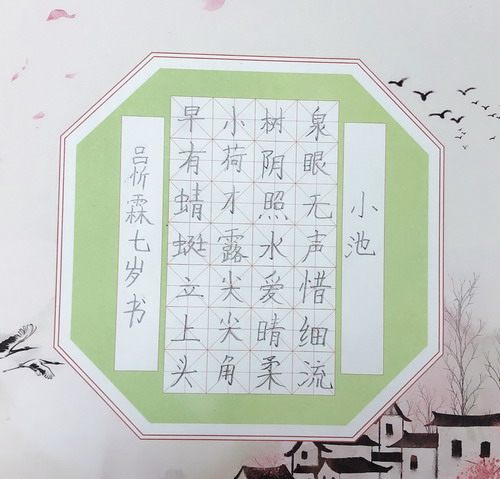 小池
泉眼无声惜细流
树阴照水爱晴柔
小荷才露尖尖角
早有蜻蜓立上头
吕忻霖七岁书